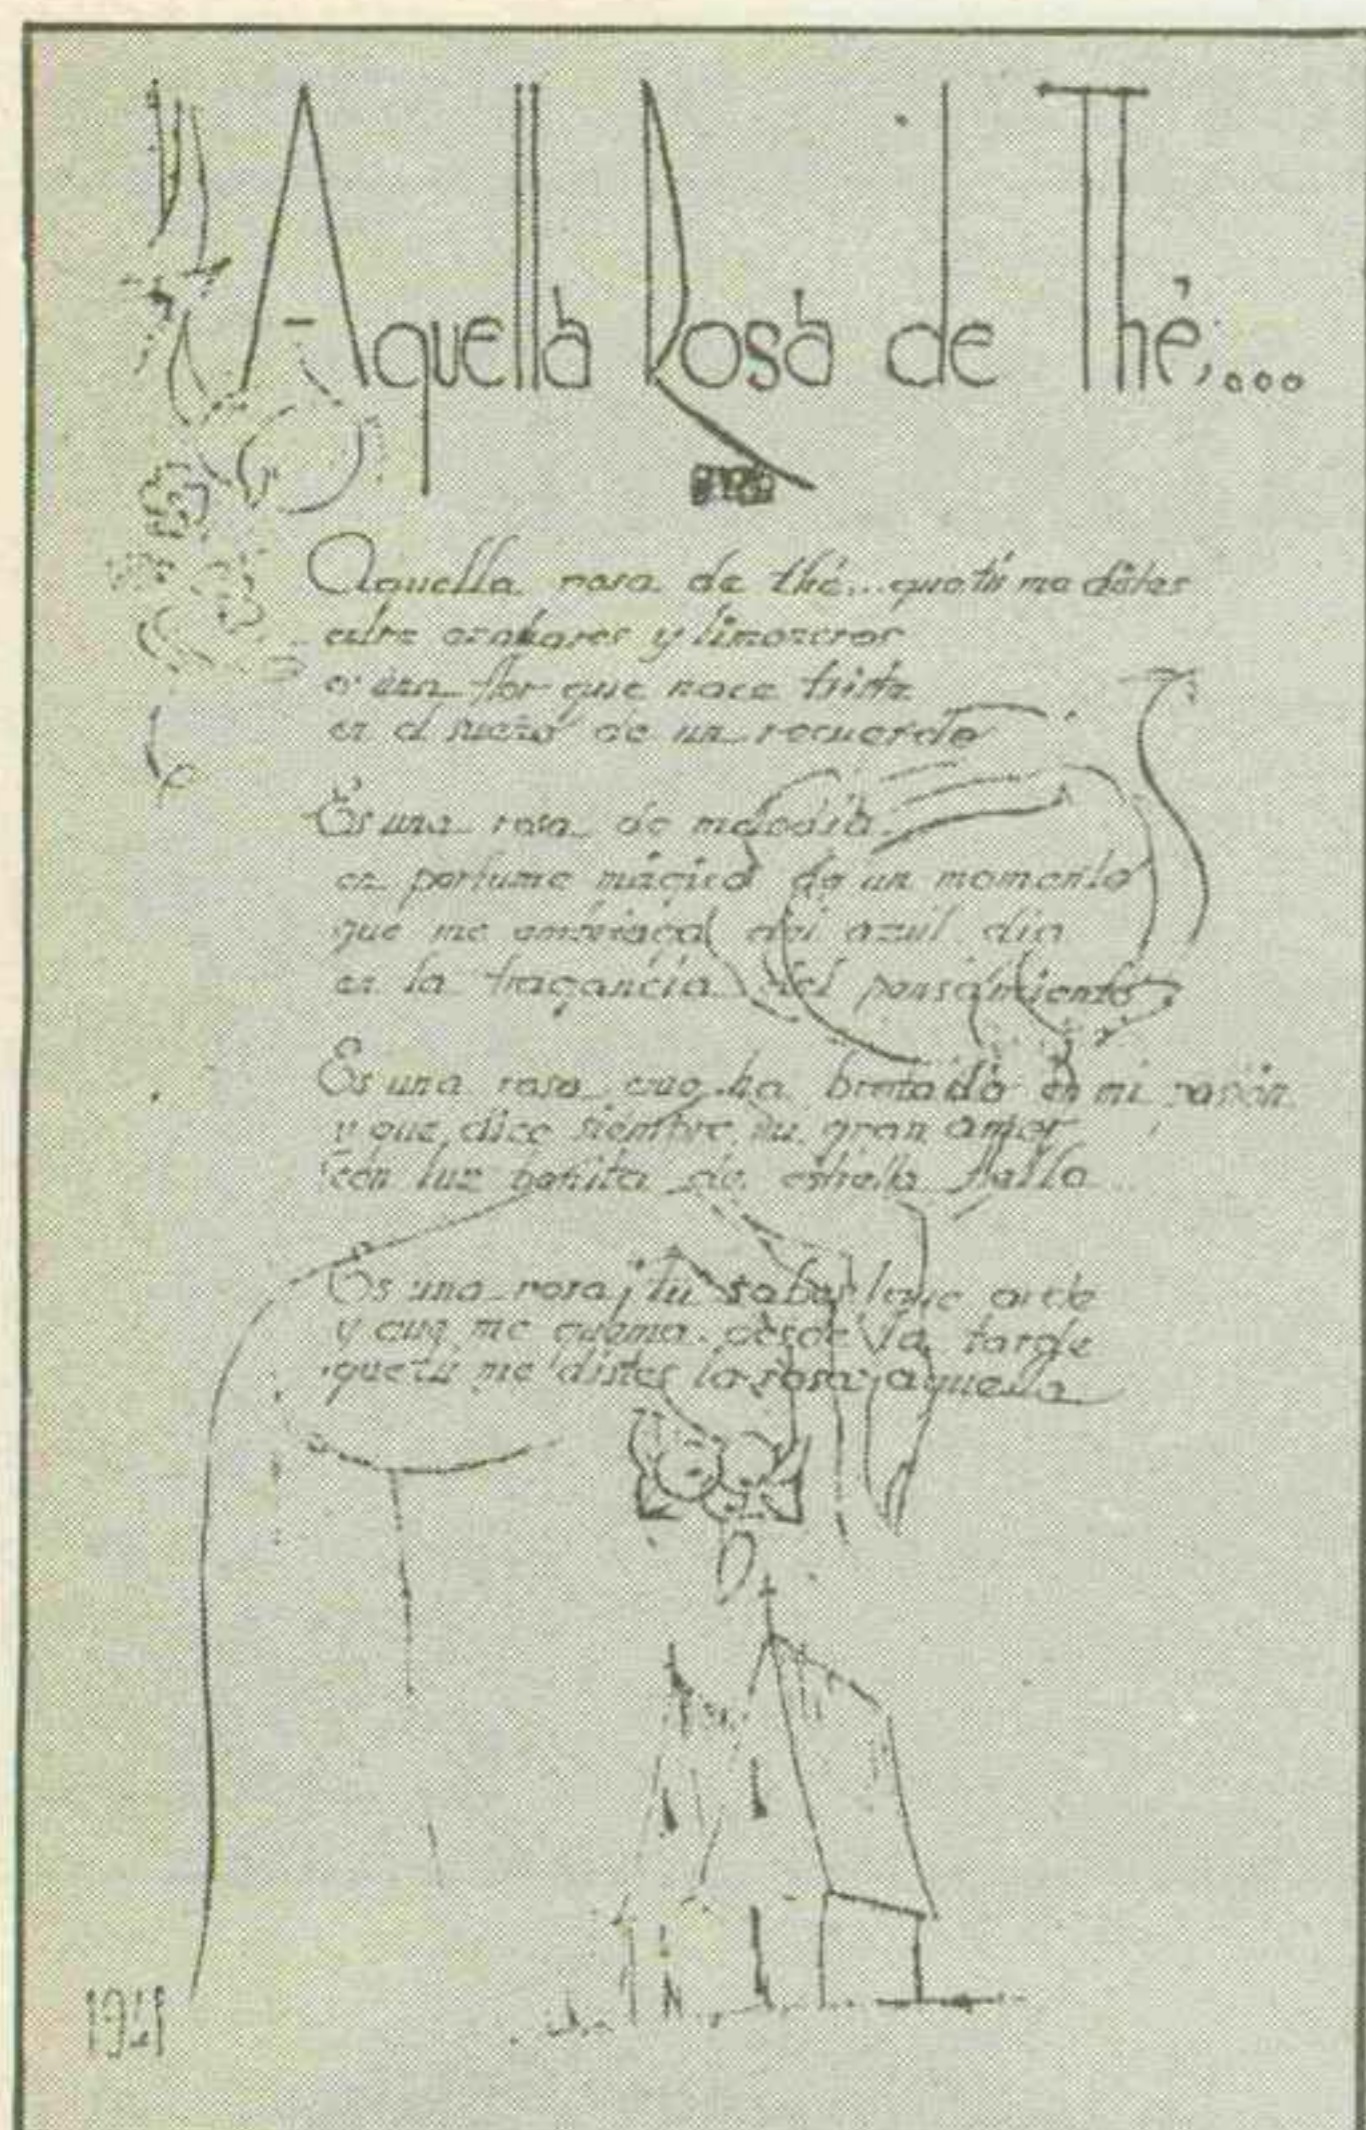 Aquella Rosa de Thé,...
Aquella rosa de thé... que tú me distes
entre azahares y limoneros
es una flor que nace triste
en el sueño de un recuerdo
Es una rosa de melodía
en perfume mágico de un momento
que me embriaga del azul día
en la fragancia del pensamiento
Es una rosa que ha brotado en mi pasión
y que dice siempre su gran amor
con luz bonita de estrella
Es una rosa, tú sabes que arde
y que me quema desde la tarde
que tú me distes la rosa aquella
1941